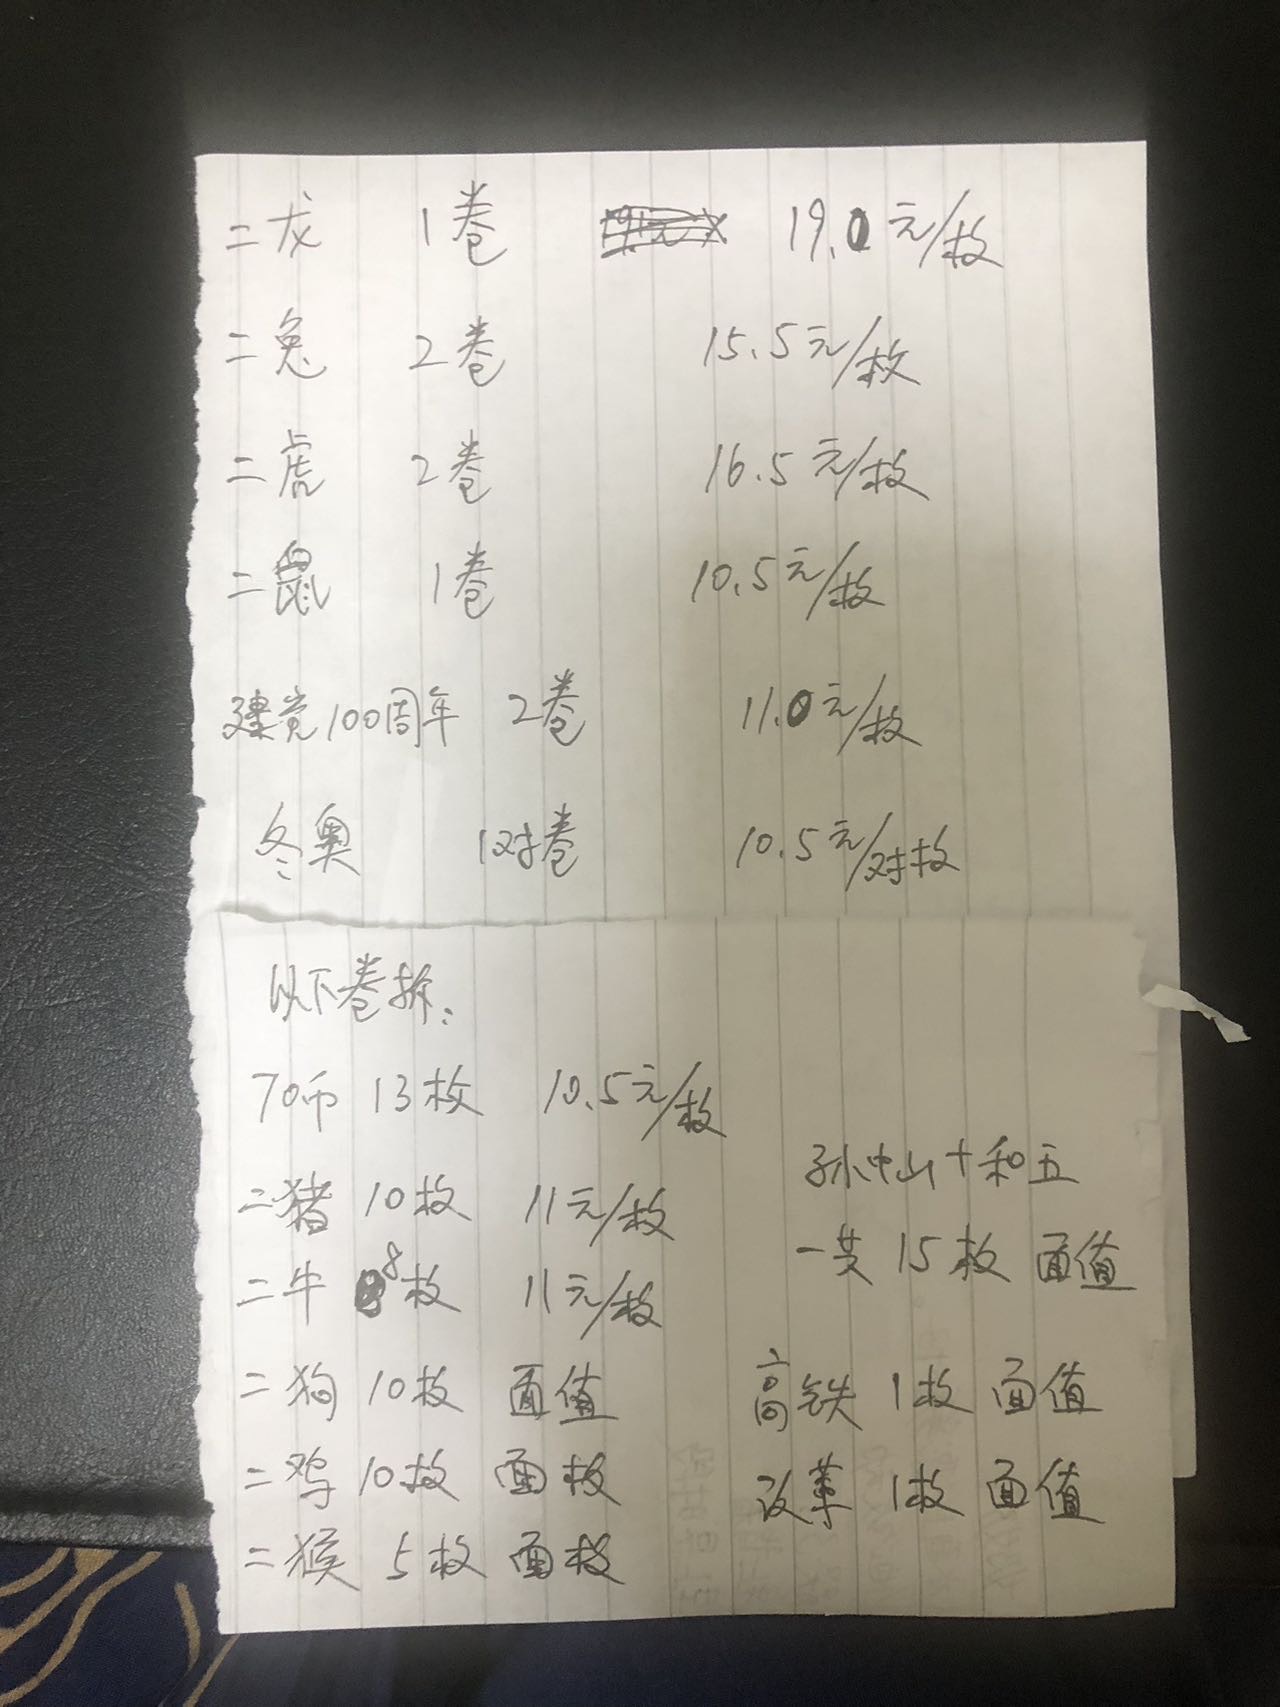 二龙 1卷 19.0元/枚
二兔 2卷 15.5元/枚
二虎 2卷 16.5元/枚
二鼠 1卷 10.5元/枚
建党100周年 2卷 11.0元/枚
冬奥 1对卷 10.5元/对枚
以下卷拆:
70币 13枚 10.5元/枚
二猪 10枚 11元/枚
二牛 8枚 11元/枚
二狗 10枚 面值
二鸡 10枚 面枚
二猴 5枚 面枚
孙中山十和五
一共 15枚 面值
高铁 1枚 面值
改革 1枚 面值